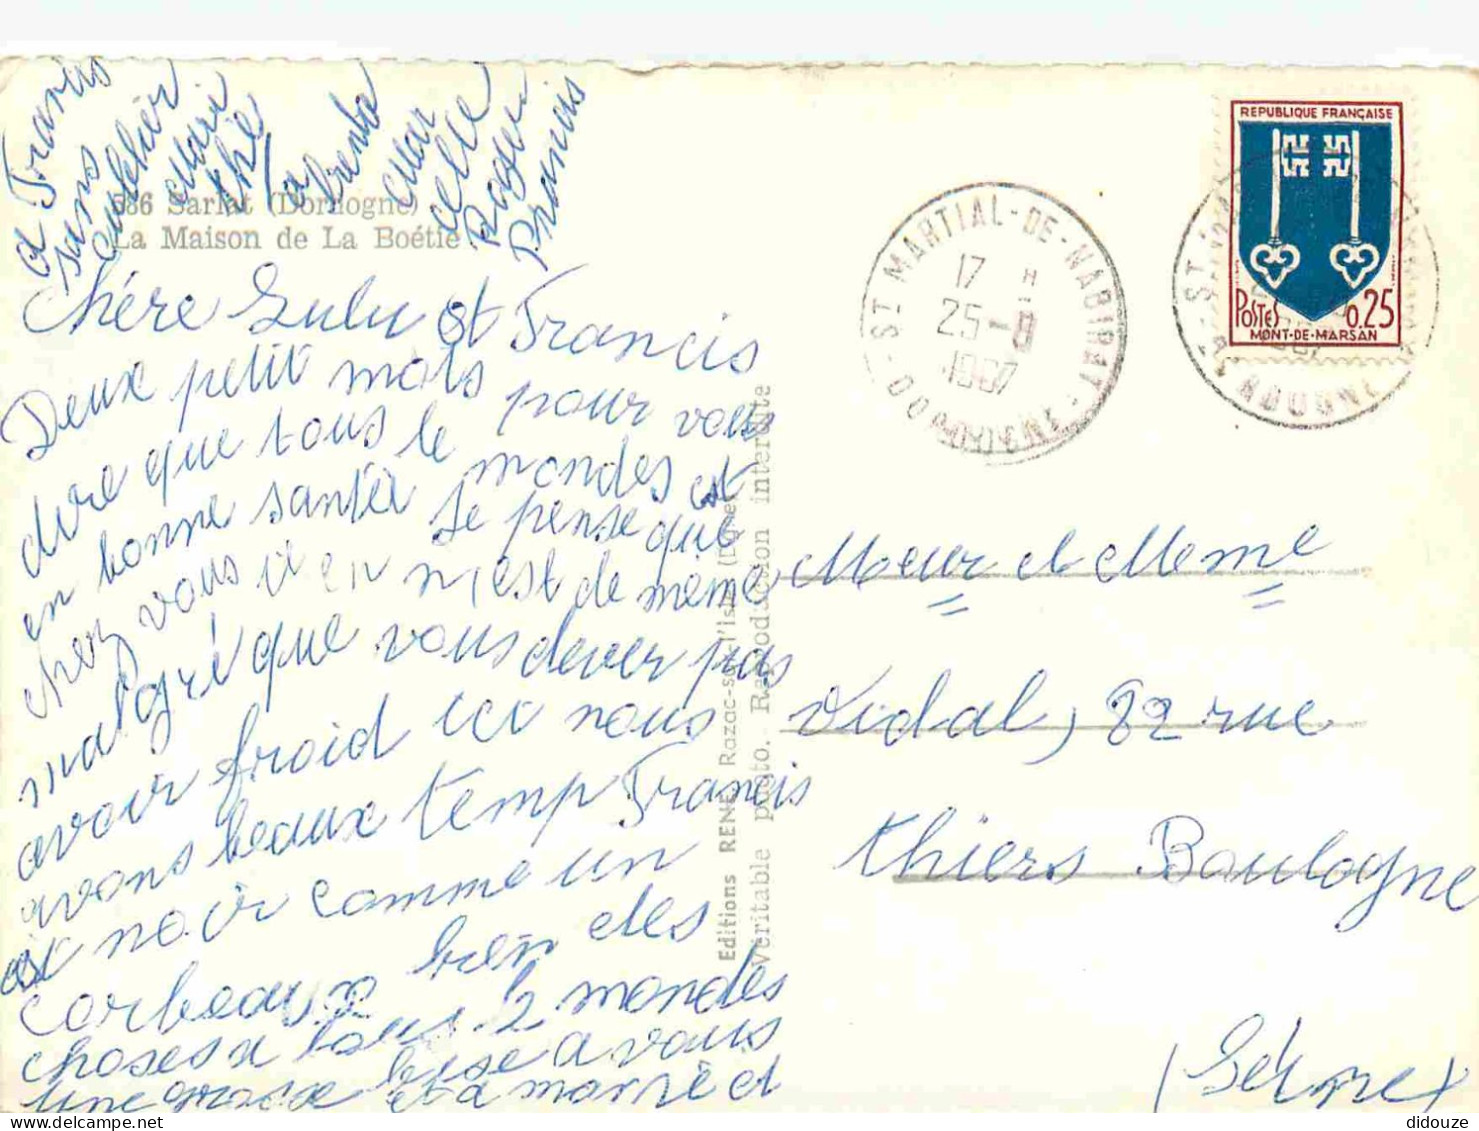 586 Sarlat (Dordogne)
La Maison de La Boétie
Chére Lulu et Francis
Deux petit mots pour vous
dire que tous le mondes est
en bonne santéé Je pense que
chez vous il en n'est de meme
malgré que vous dever pas
avoir froid ici nous
avons beaux temp Francis
est noir comme un
corbeaux bien des
choses a tous 2 mondes
une grosse bise a vous
et a marie et
a Francis
sans
oublier
mari
thé
la
brenda
mar
celle
Roger
Francis
Editions RENE, Razac-sur-l'Isle (Dgne)
Véritable photo. Reproduction interdite
ST MARTIAL-DE-NABIRAT
17 H
25-8
1967
DORDOGNE
REPUBLIQUE FRANÇAISE
POSTES 0,25
MONT-DE-MARSAN
Meur et Meme
Vidal, 82 rue
thiers Boulogne
(Seine)
didouze